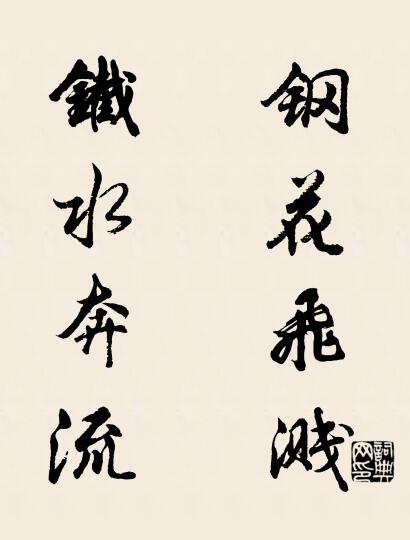 钢花飛溅
鐵水奔流
詞典网印